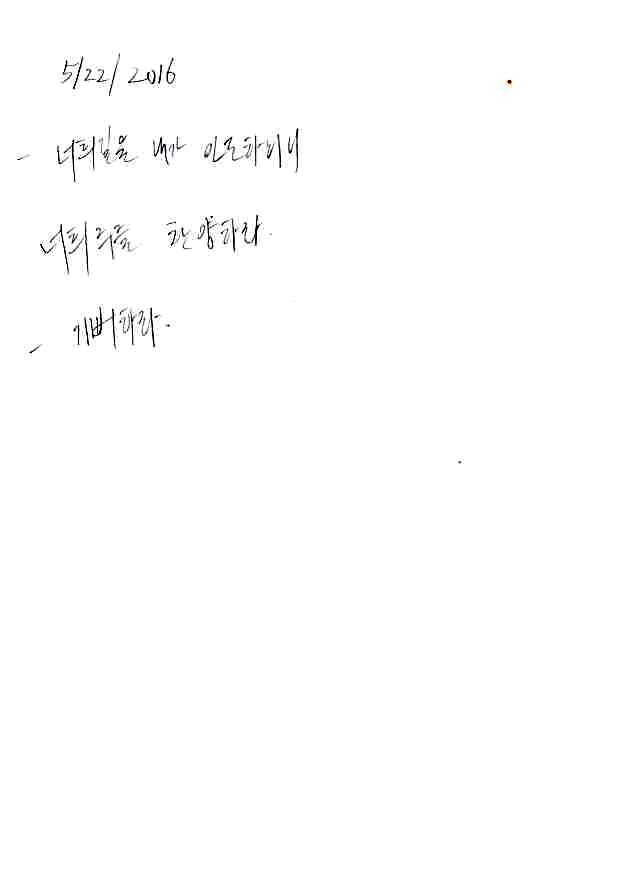 5/22/2016
- 너희길을 내가 인도하리니
너희 찬양하라.
- 기뻐하라.